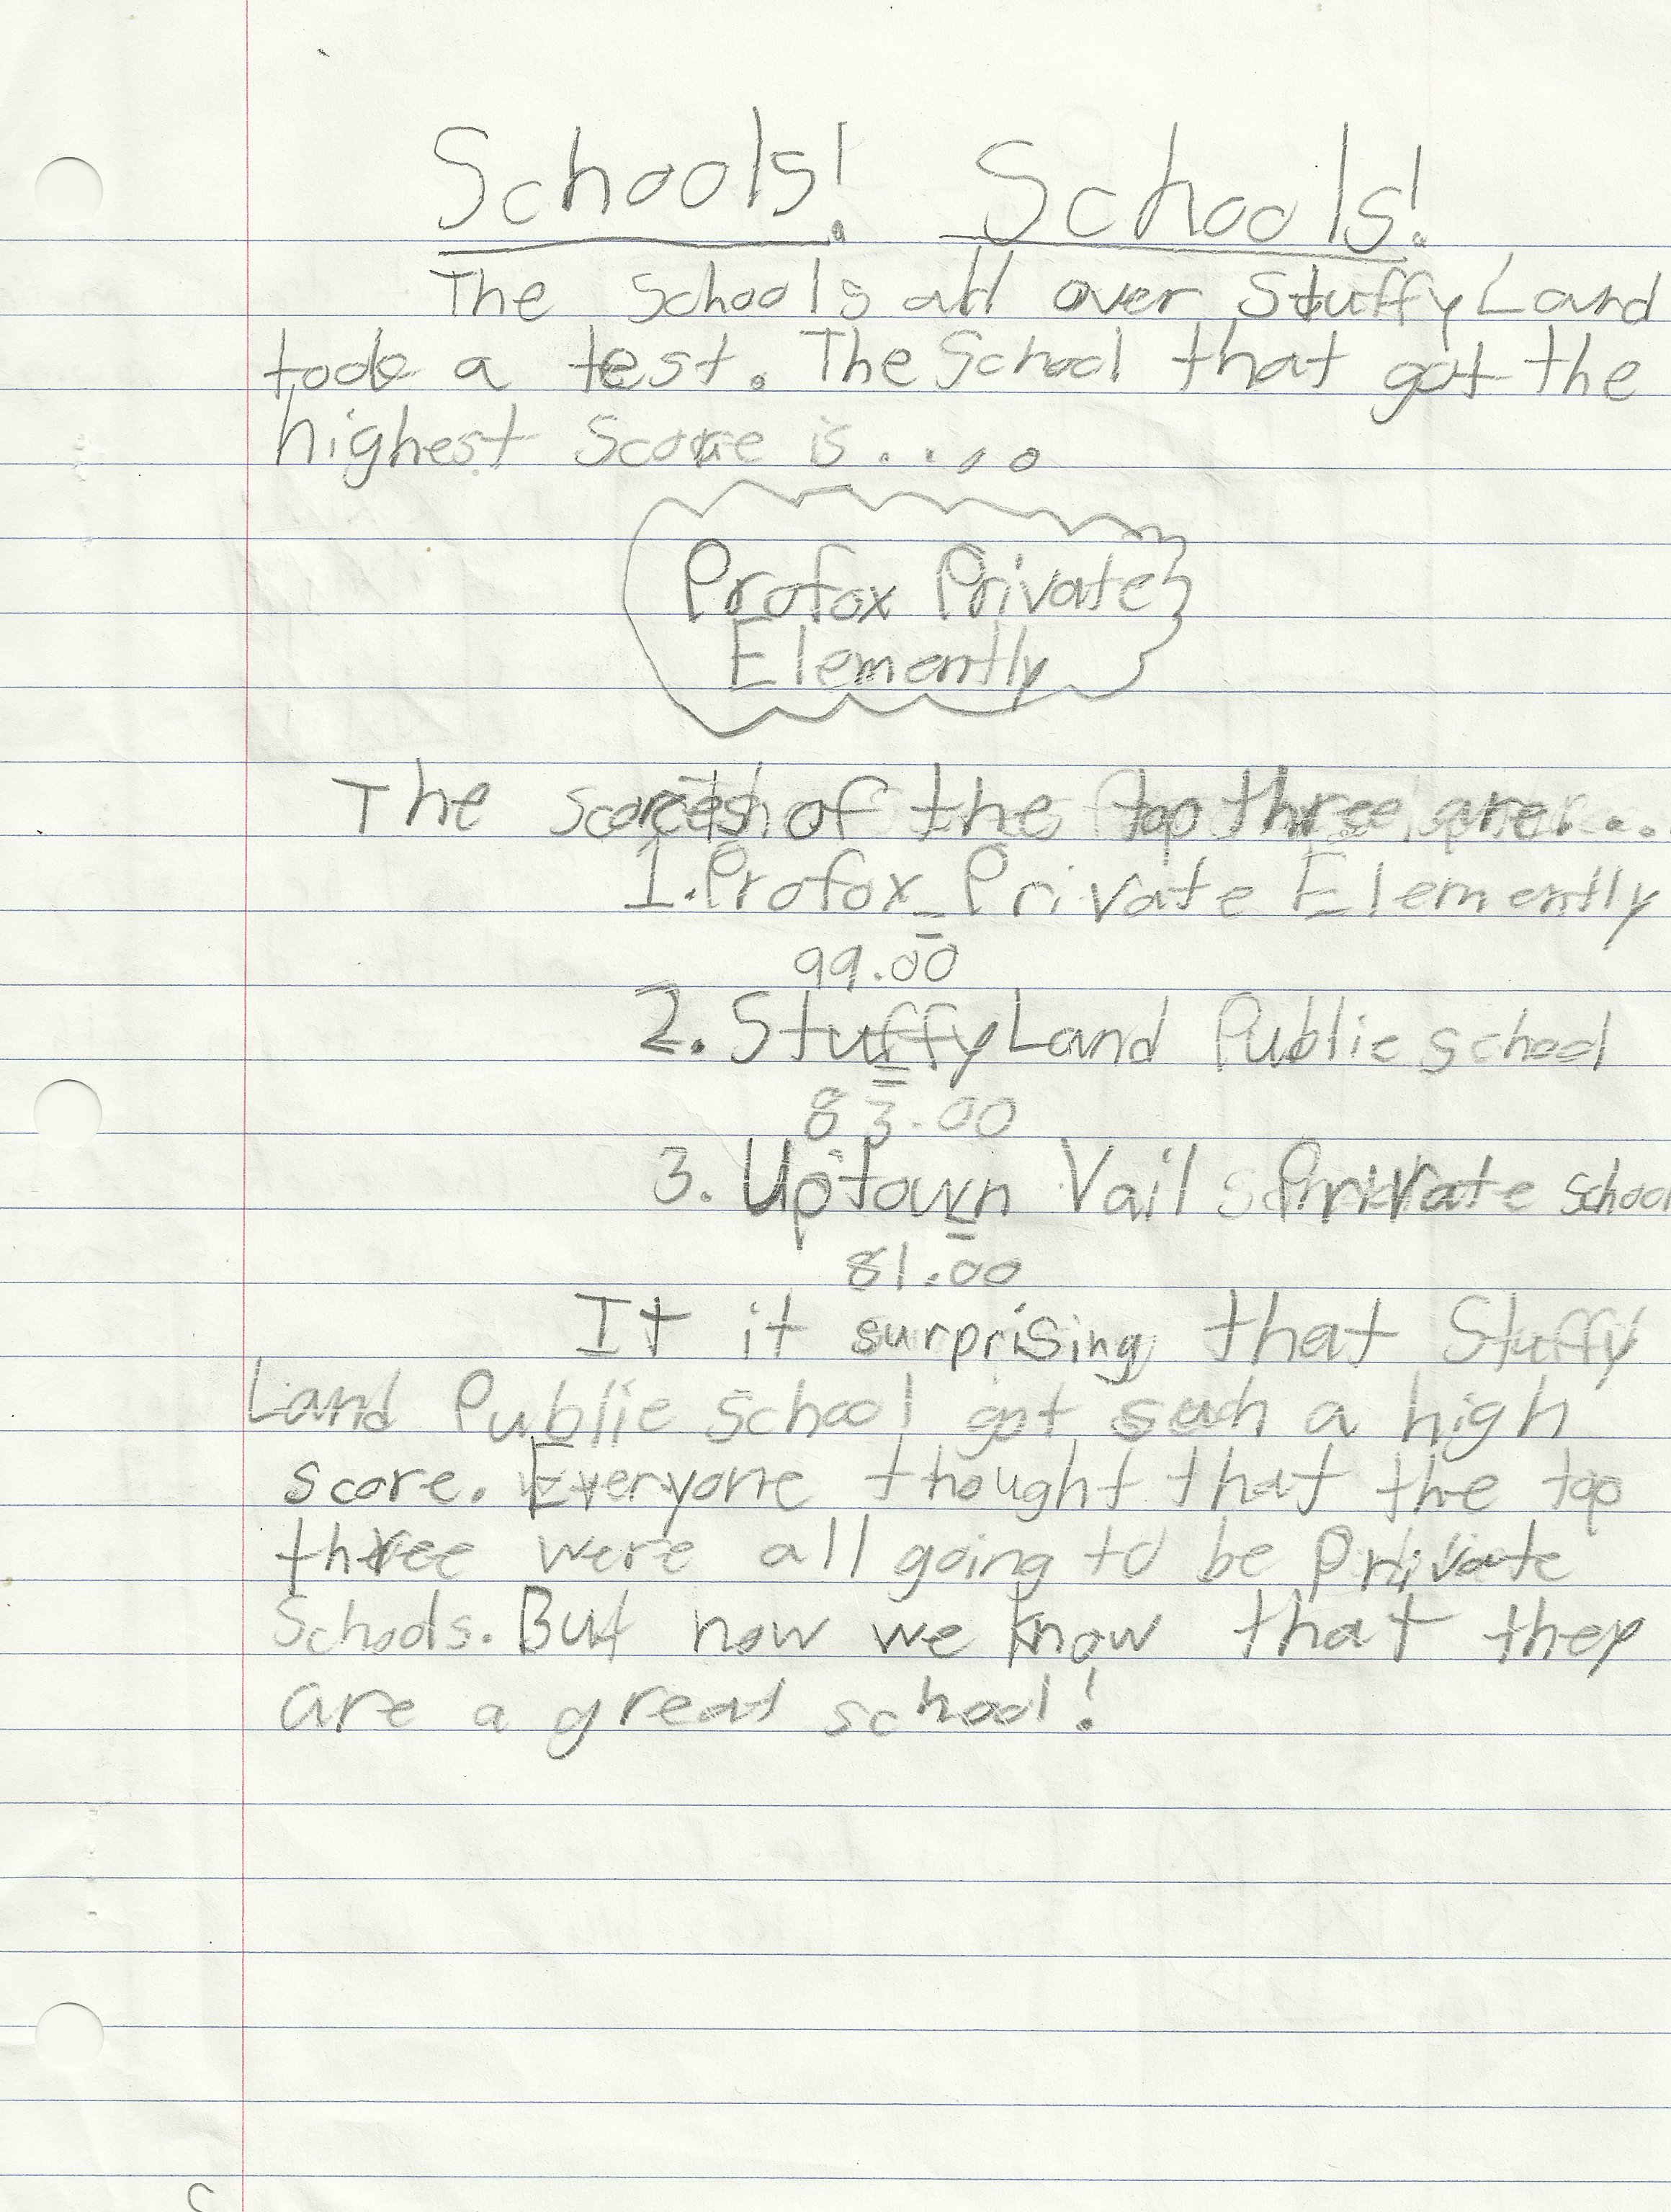 Schools! Schools!
The Schools all over StuffyLand
took a test. The School that got the
highest Score is.....
Profox Private
Elemently
The scores of the top three are....
1. Profox Private Elemently
=
99.00
2. StuffyLand Public school
=
83.00
3. Uptown Vail Private school
=
81.00
It it surprising that Stuffy
Land Public School got such a high
score. Everyone thought that the top
three were all going to be private
Schools. But now we know that they
are a great school!